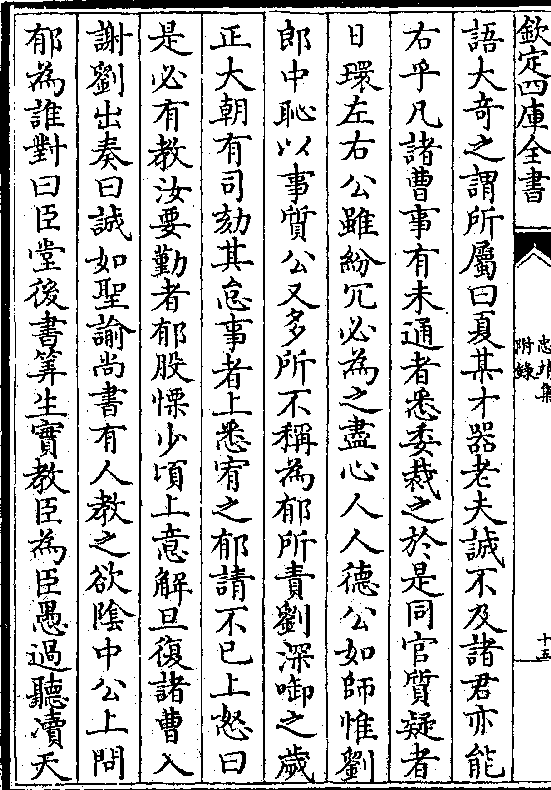 欽定四庫全書
忠靖集
附錄
十五
語大奇之謂所屬曰夏某才器老夫誠不及諸君亦能
右乎凡諸曹事有未通者悉委裁之於是同官質疑者
日環左右公雖紛冗必為之盡心人人德公如師惟劉
郎中恥以事質公又多所不稱為郁所責劉深啣之歲
正大朝有司劾其怠事者上悉宥之郁請不已上怒曰
是必有教汝要勤者郁股慄少頃上意解旦復諸曹入
謝劉出奏曰誠如聖諭尚書有人教之欲陰中公上問
郁為誰對曰臣堂後書筭生實教臣為臣愚過聽瀆天